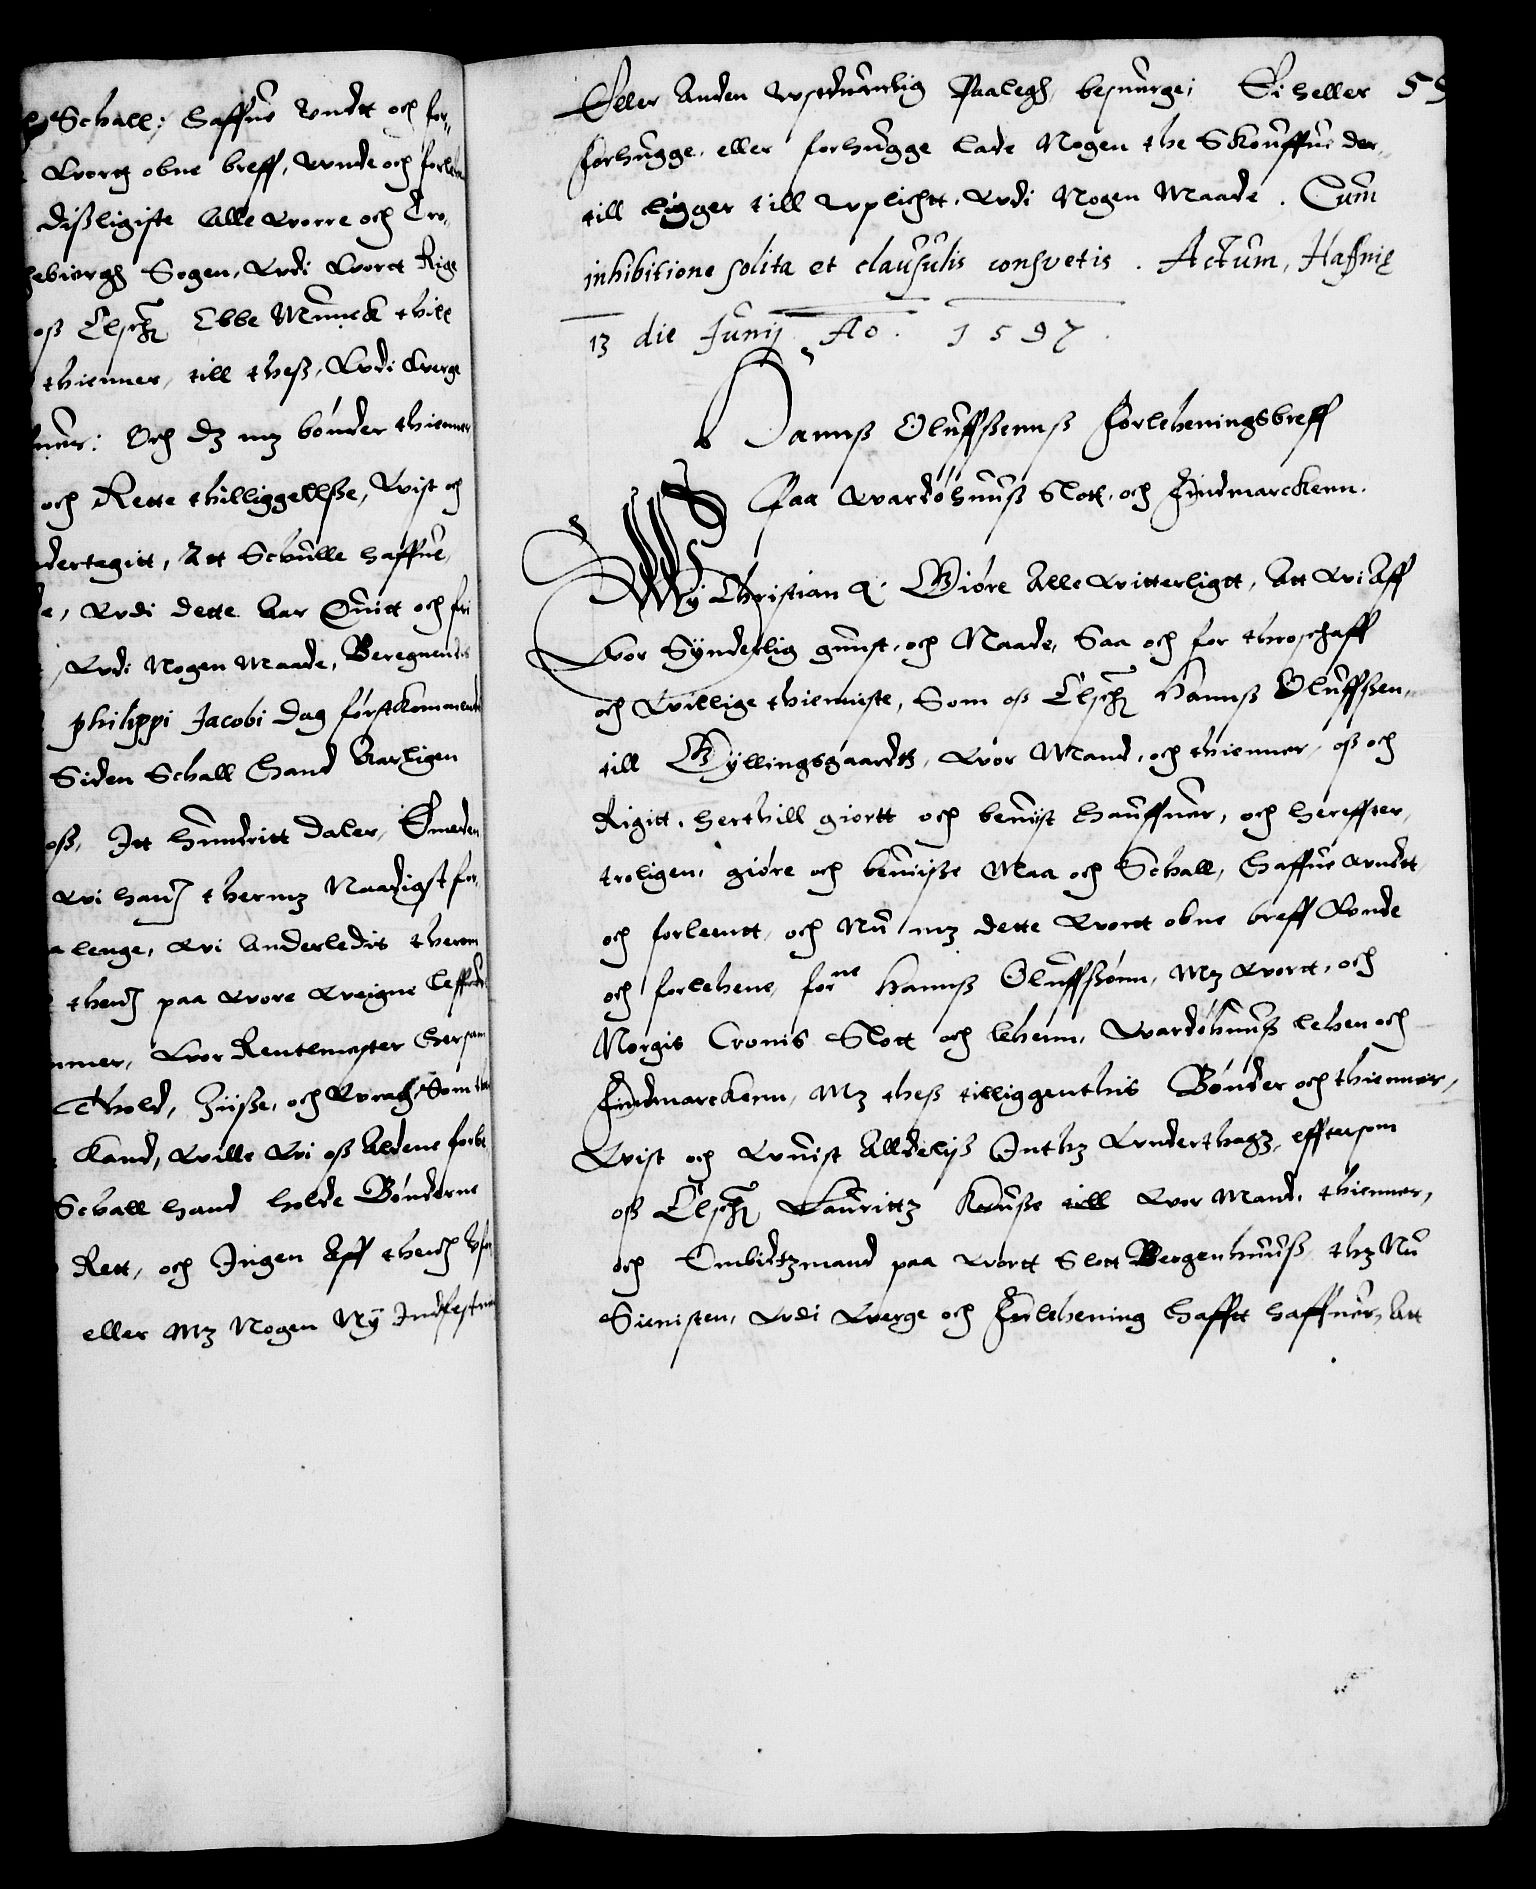 Schall: Haffue Undtt och for-
Wortt obne breff, Unde och forlehn
disligiste Alle Worre och Cro-
Sogen, Udi Wort Rige
oß Elsche Ebbe Munck thill
thienner, till theß, Udi Werge
Och dz mz bønder thienner
och Rette thilliggellße, Wist och
dertagitt, Att Schulle haffue,
Udi dette Aar Quitt och fri
Udi Nogen Maade, Beregnendis
philippi Jacobi Dag førstkommend
Siden Schall Hand Aarligen
oß, Itt hundritt Daler, Emeden
Wi hannem thermz Naadigst for
lenge, Wi Anderledis therom
thend paa Wore Weigne
Wor Rentemester
Thold, Siiße, och Wrag, Som
Kand, Wille Wi oß Aldene forbe
Schall hand holde Bønderne
Rett, och Ingen Aff thend Ufor
eller Mz Nogen Ny Indfestni
Eller Anden Usedvanlig Paalegh besuerge; Ei heller 59
forhugge, eller forhugge lade Nogen the Skouffue der-
till ligger till Uplichtt, Udi Nogen Maade. Cum
inhibitione solita et clausulis consvetis. Actum, Hafnię
13 die Junij Ao. 1597.
Hannß Oluffßennß Forleheningsbreff
Paa Wardøhuuß Slott, och Findmarckenn.
Wy Christian &. Giøre Alle Witterligtt, Att Wi Aff
Wor Synderlig gunst, och Naade, Saa och for throschaff
och Willige thienniste, Som oß Elsche Hannß Oluffßen,
till Gyllingsgaardtt, Wor Mand, och thienner, oß och
Rigitt, herthill giortt och beuist hauffuer, och hereffter,
troligen, giøre och beuiiße Maa och Schall, Haffue Undtt
och forlentt, och Nu mz dette Wort obne breff Unde
och forlehene, forne Hannß Oluffßønn, Mz Wortt, och
Norgis Cronis Slott och lehenn, Wardøhuuß lehen och
Findmarckenn, Mz theß tilliggenthis Bønder och thienner,
Wist och Uuist Alldeliß Inthz Underthagz, efftersom
oß Elsche Lauritz Kruße till Wor Mand, thienner,
och Embidtzmand paa Wortt Slott Bergenhuuß thz Nu
Sienisten, Udi Werge och Forlehening Hafftt haffuer, Att